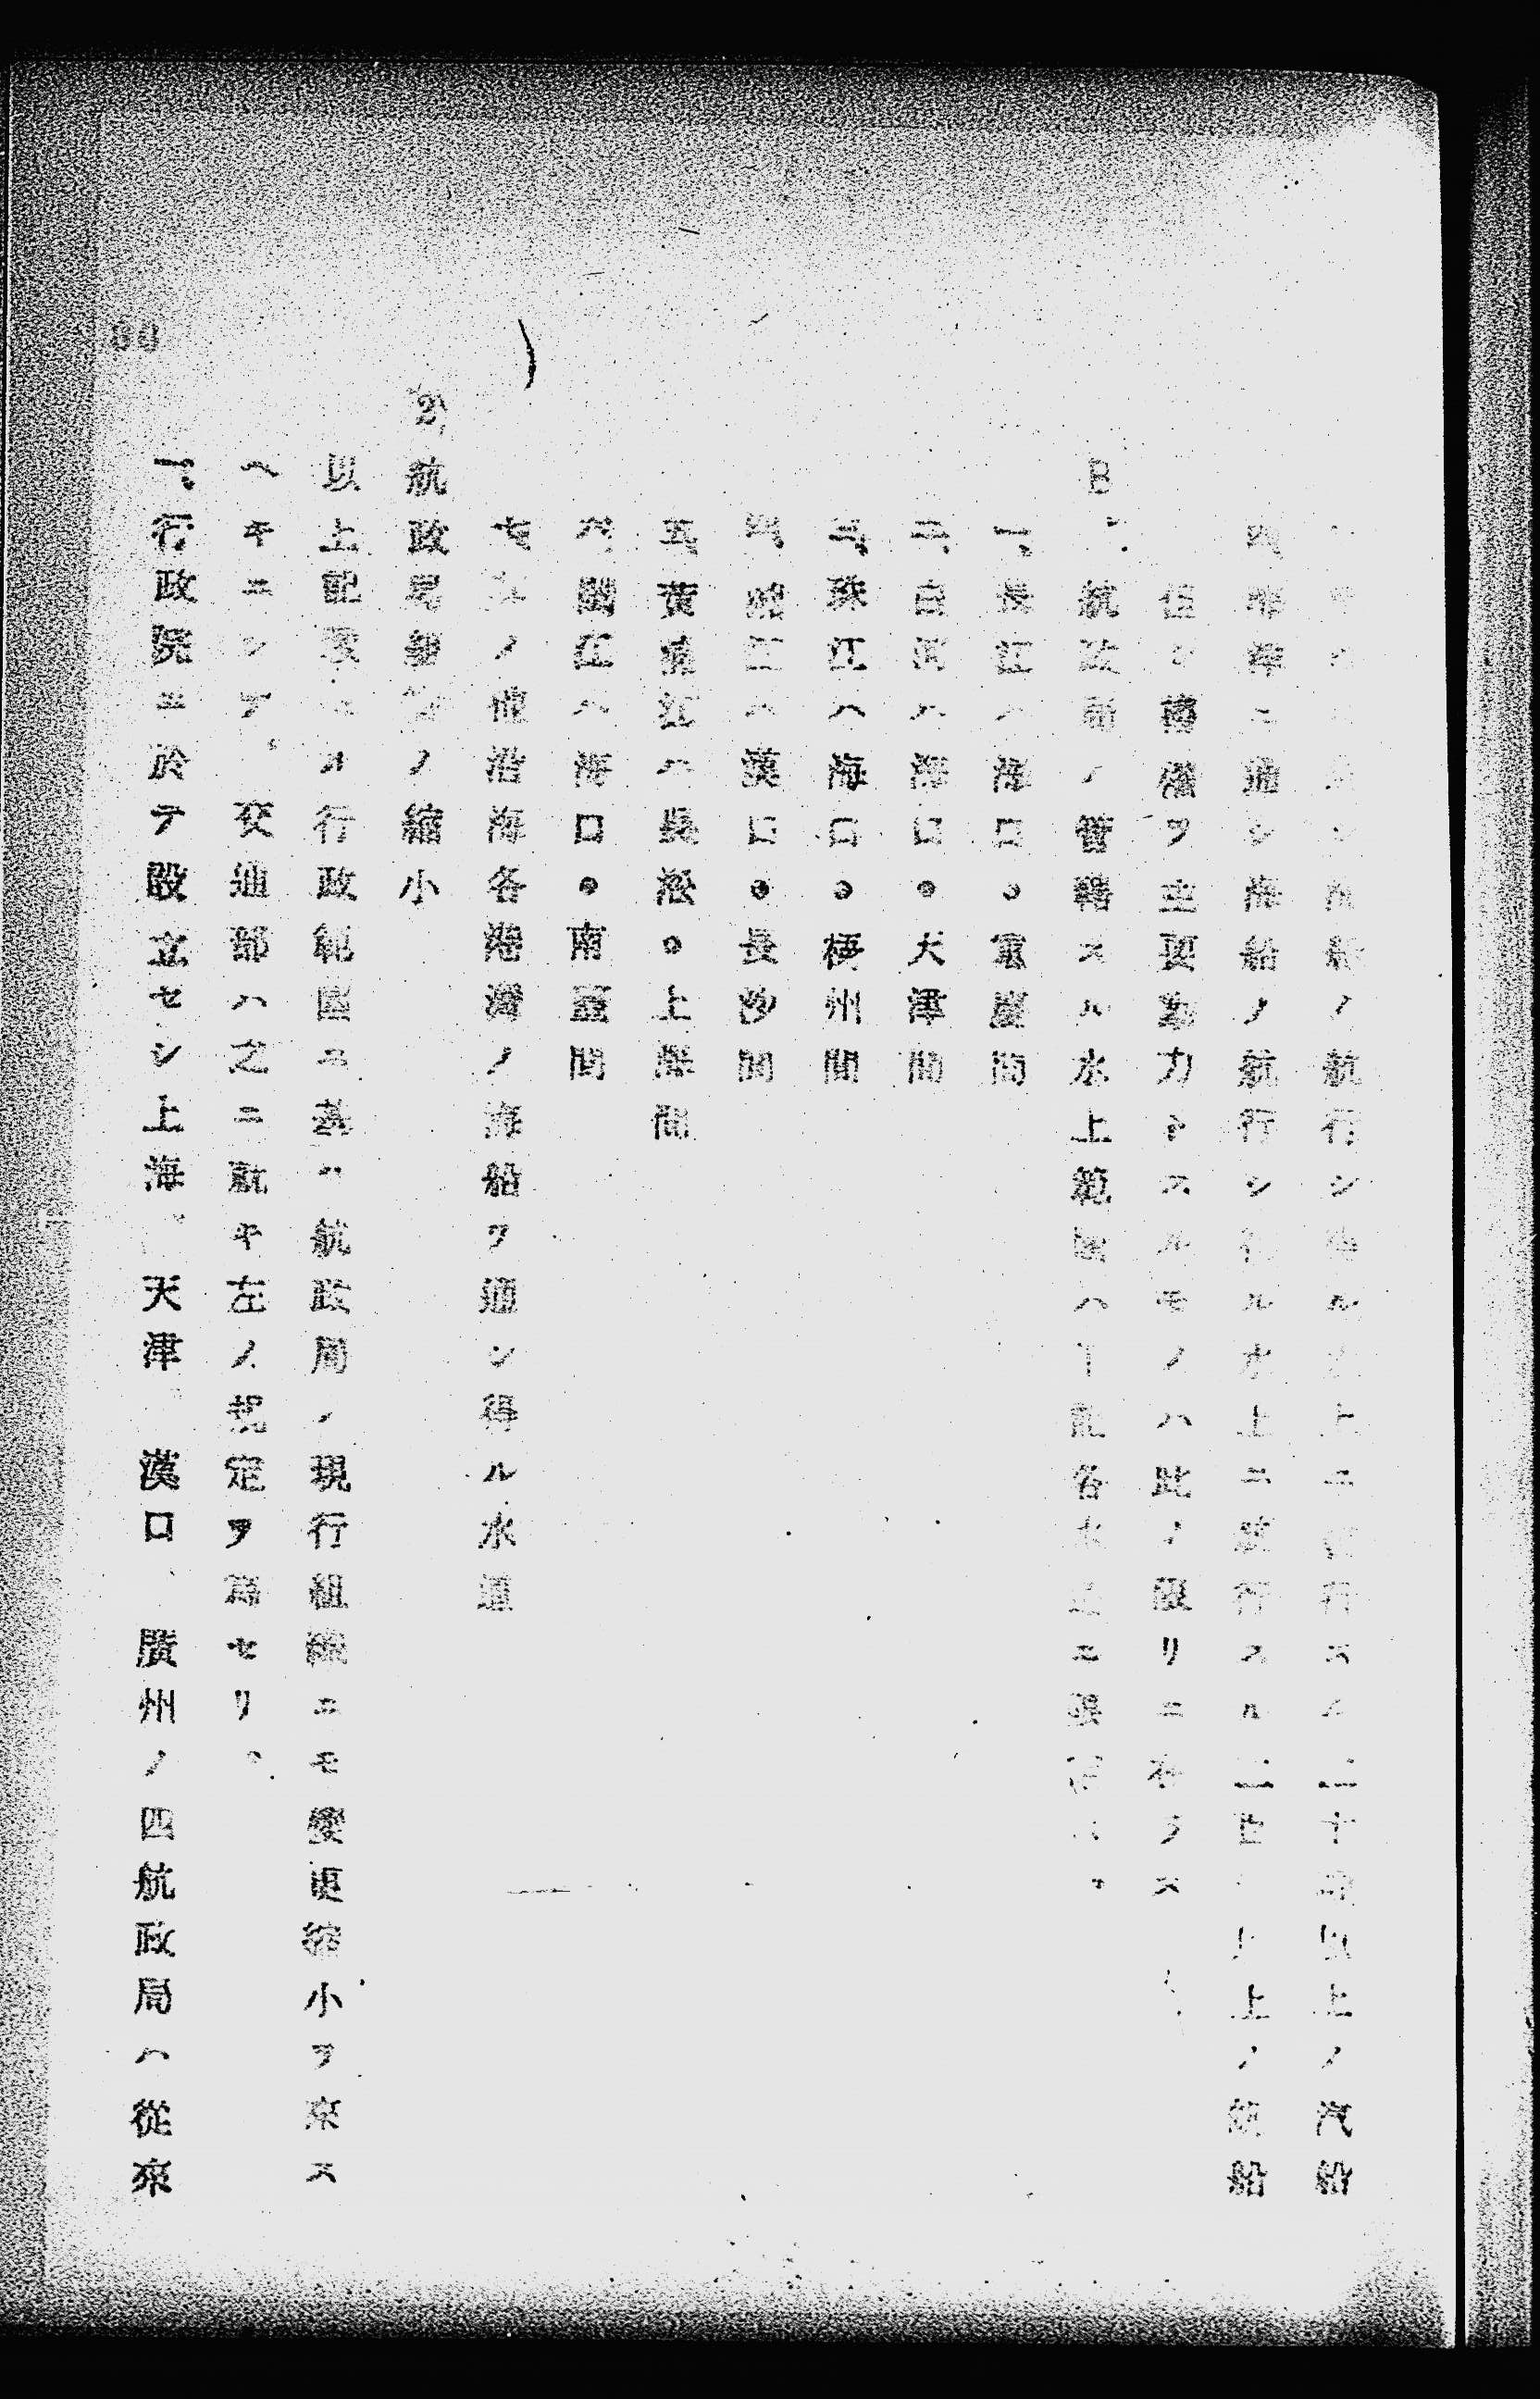 船ノ航行シ得ル水上ニ航行スル二十噸以上ノ汽船
四、海岸ニ通シ海船ノ航行シ得ル水上ニ航行スル二百 以上ノ帆船
但シ 機ヲ主要動力トスルモノハ此ノ限リニ在ラス
B、航政局ノ管轄スル水上範圍ハ下記各水道ニ限定ス
一、長江ハ海口。重慶間
二、白河ハ海口。天津間
三、珠江ハ海口。梧州間
四、 江ハ漢口。長沙間
五、黃浦江ハ吳淞。上海間
六、閩江ハ海口。南臺間
七、其ノ他沿海各港灣ノ海船ヲ通シ得ル水道
2) 航政局組織ノ縮小
以上記 航行政範圍ニ基キ航政局ノ現行組織ニモ變更縮小ヲ來ス
ヘキニシテ、交通部ハ之ニ就キ左ノ規定ヲ爲セリ。
一、行政院ニ於テ設立セシ上海、天津、漢口、廣州ノ四航政局ハ從來